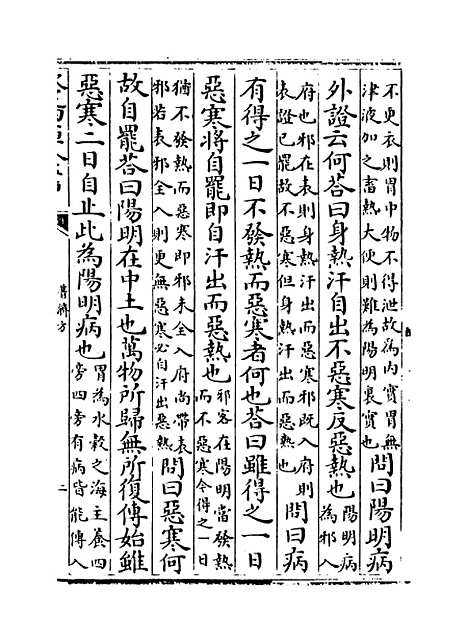 不更衣則胃中物不得泄故為內實胃無
津液加之畜熱大便則難為陽明裏實也
問曰陽明病
外證云何荅曰身熱汗自出不惡寒反惡熱也
陽明病
為邪入
府也邪在表則身熱汗出而惡寒邪既入府則
表證已罷故不惡寒但身熱汗出而惡熱也
問曰病
有得之一日不發熱而惡寒者何也荅曰雖得之一日
惡寒將自罷即自汗出而惡熱也
邪客在陽明當發熱
而不惡寒今得之一日
猶不發熱而惡寒即邪未全入府尚帶表
邪若表邪全入則更無惡寒必自汗出惡熱
問曰惡寒何
故自罷荅曰陽明在中土也萬物所歸無所復傳始雖
惡寒二日自止此為陽明病也
胃為水穀之海主養四
旁四旁有病皆能傳入
普濟方
二